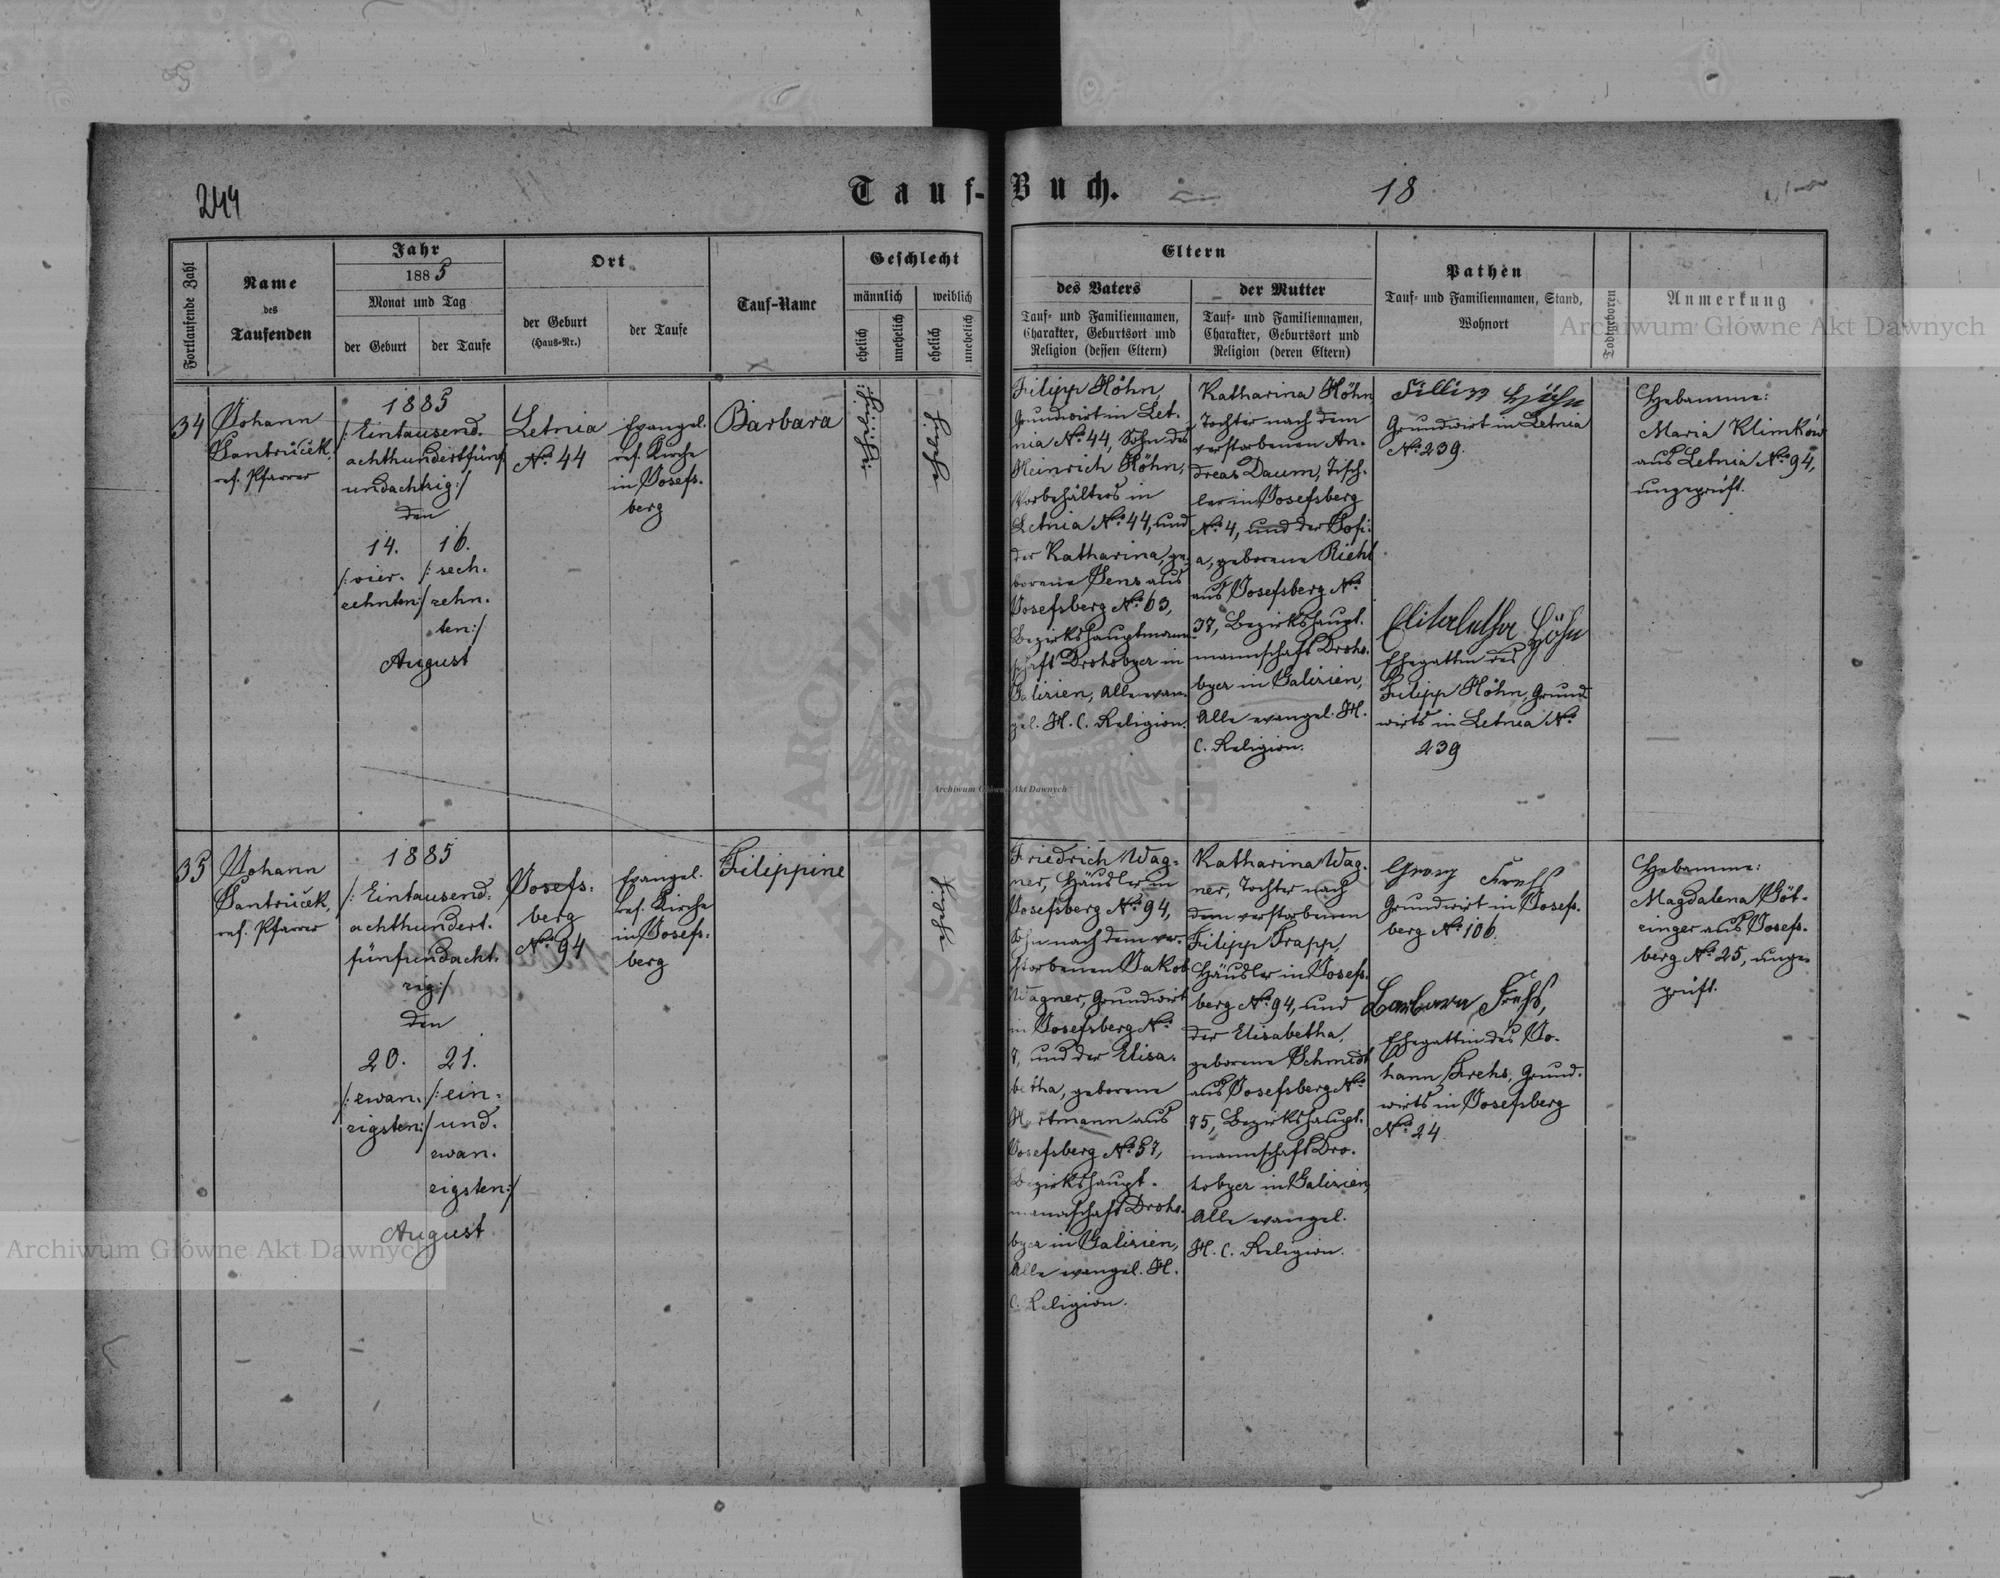 244
Tauf-Buch.
18
Fortlaufende Zahl
Name
des
Taufenden
Jahr
1885
Monat und Tag
der Geburt
der Taufe
Ort
der Geburt
(Haus-Nr.)
der Taufe
Tauf-Name
Geschlecht
männlich
weiblich
ehelich
unehelich
ehelich
unehelich
Eltern
des Vaters
Tauf- und Familiennamen,
Charakter, Geburtsort und
Religion (dessen Eltern)
der Mutter
Tauf- und Familiennamen,
Charakter, Geburtsort und
Religion (deren Eltern)
Pathen
Tauf- und Familiennamen, Stand,
Wohnort
Todtgeboren
Anmerkung
34
Johann
Jantrúček,
ref. Pfarrer
1885
/: Eintausend-
achthundertfünf
undachtzig :/
den
14.
/: vier-
zehnten :/
16.
/: sech-
zehn-
ten :/
August
Letnia
No. 44
Evangel.
ref. Kirche
in Josefs-
berg
Barbara
eheliche
Filipp Höhn,
Grundwirt in Let-
nia No. 44, Sohn des
Heinrich Höhn,
Vorbehälters in
Letnia No. 44, und
der Katharina, ge-
borene Jens aus
Josefsberg No. 63,
Bezirkshauptmann-
schaft Drohobycz in
Galizien, Alle evan-
gel. H. C. Religion.
Katharina Höhn
Tochter nach dem
verstorbenen An-
dreas Daum, Tisch-
ler in Josefsberg
No. 4, und der Sofi-
a, geborene Riehl
aus Josefsberg No.
37, Bezirkshaupt-
mannschaft Droho-
bycz in Galizien,
Alle evangel. H.
C. Religion.
Fillipp Höhn
Grundwirt in Letnia
No. 239.
Elisabetha Höhn
Ehegattin des
Filipp Höhn, Grund-
wirts in Letnia No.
239
Hebamme:
Maria Klimków
aus Letnia No. 94,
ungeprüft.
35
Johann
Jantrúček,
ref. Pfarrer
1885
/: Eintausend-
achthundert-
fünfundacht-
zig :/
den
20.
/: zwan-
zigsten :/
21.
/: ein-
und-
zwan-
zigsten :/
August
Josefs-
berg
No. 94
Evangel.
ref. Kirche
in Josefs-
berg
Filippine
Friedrich Wag-
ner, Häusler in
Josefsberg No. 94,
Sohn nach dem ver-
storbenen Jakob
Wagner, Grundwirt
in Josefsberg No.
und der Elisa-
betha, geborene
Hartmann aus
Josefsberg No. 57,
Bezirkshaupt-
mannschaft Droho-
bycz in Galizien,
Alle evangel. H.
C. Religion.
Katharina Wag-
ner, Tochter nach
dem verstorbenen
Filipp Trapp,
Häusler in Josefs-
berg No. 94, und
der Elisabetha,
geborene Schmidt
aus Josefsberg No.
85, Bezirkshaupt-
mannschaft Dro-
hobycz in Galizien,
Alle evangel.
H. C. Religion.
Georg Frehs
Grundwirt in Josefs-
berg No. 106.
Barbara Frehs,
Ehegattin des Jo-
hann Frehs, Grund-
wirts in Josefsberg
No. 24.
Hebamme:
Magdalena Göt-
zinger aus Josefs-
berg No. 25, unge-
prüft.
Archiwum Główne Akt Dawnych
Archiwum Główne Akt Dawnych
Archiwum Główne Akt Dawnych